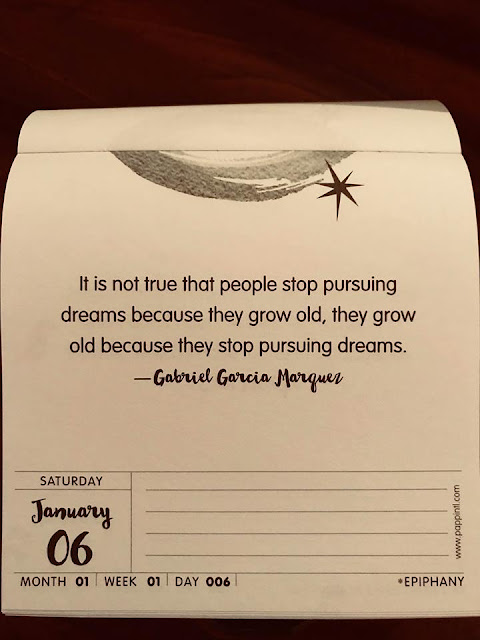 It is not true that people stop pursuing
dreams because they grow old, they grow
old because they stop pursuing dreams.
—Gabriel Garcia Marquez
SATURDAY
January
06
MONTH 01 | WEEK 01 | DAY 006 |
*EPIPHANY
www.pappintl.com